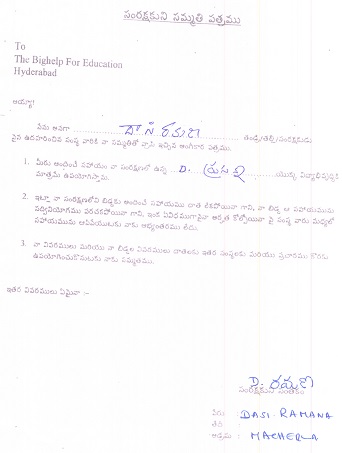 సంరక్షకుని సమ్మతి పత్రము
To
The Bighelp For Education
Hyderabad
అయ్యా!
నేను అనగా దాసి రమణ తండ్రి/తల్లి/సంరక్షకుడు
పైన ఉదహరించిన సంస్థ వారికి నా సమ్మతితో వ్రాసి ఇచ్చిన అంగీకార పత్రము.
1. మీరు అందించే సహాయం నా సంరక్షణలో ఉన్న D. యొక్క విద్యాభివృద్ధికి
మాత్రమే ఉపయోగిస్తాను.
2. ఇట్లా నా సంరక్షణలోని బిడ్డకు అందించే సహాయము దాత లేకపోయినా గాని, నా బిడ్డ ఆ సహాయమును
సద్వినియోగము పరచకపోయినా గాని, ఇంక ఏవిధముగానైనా అర్హత కోల్పోయినా పై సంస్థ వారు మధ్యలో
సహాయమును ఆపివేయుటకు నాకు అభ్యంతరము లేదు.
3. నా వివరములు మరియు నా బిడ్డల వివరములు దాతలకు ఇతర సంస్థలకు మరియు ప్రచారము కొరకు
ఉపయోగించుకొనుటకు నాకు సమ్మతము.
ఇతర వివరములు ఏమైనా :-
D. రమణ
సంరక్షకుని సంతకం
పేరు : DASI. RAMANA
తేది :
అడ్రసు : MACHERLA